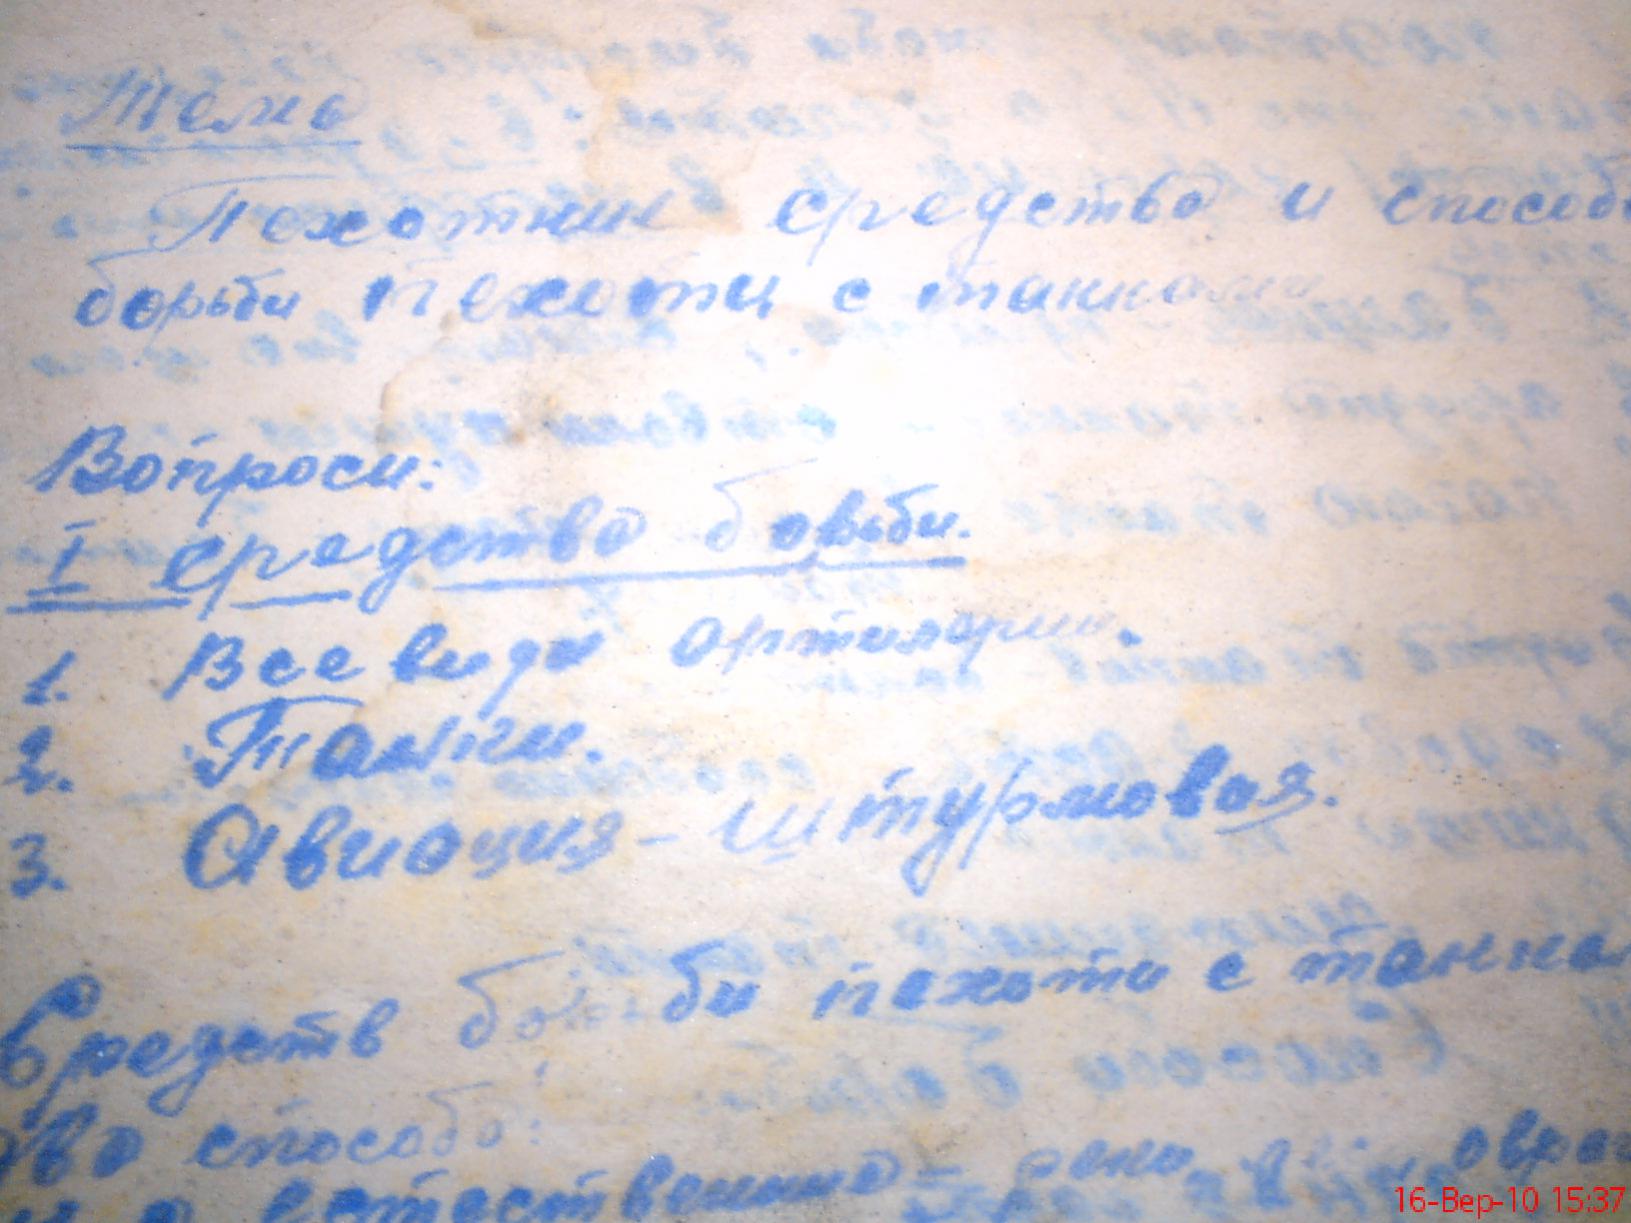 Тема
Пехотние средства и способ
борьби пехоти с танками
Вопроси:
I Средства борьби.
1. Все види артилерии.
2. Танки.
3. Авиация - штурмовая.
Средств борьби пехоти с танка
два способа:
естественно - 
16-Вер-10 15:37